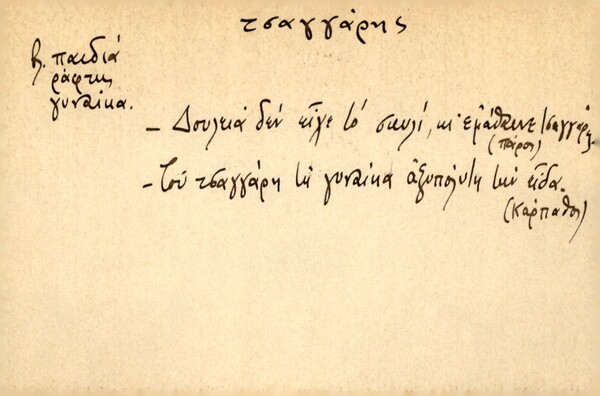 τσαγγάρης
β. παιδιά
ράφτης
γυναίκα.
– Δουλειά δέν εἶχε τό σκυλί, κι' ἐμάθαινε τσαγγάρης
(Πάρος)
– Τοῦ τσαγγάρη τή γυναίκα ἀξυπόλυτη τήν εἶδα.
(Κάρπαθος)